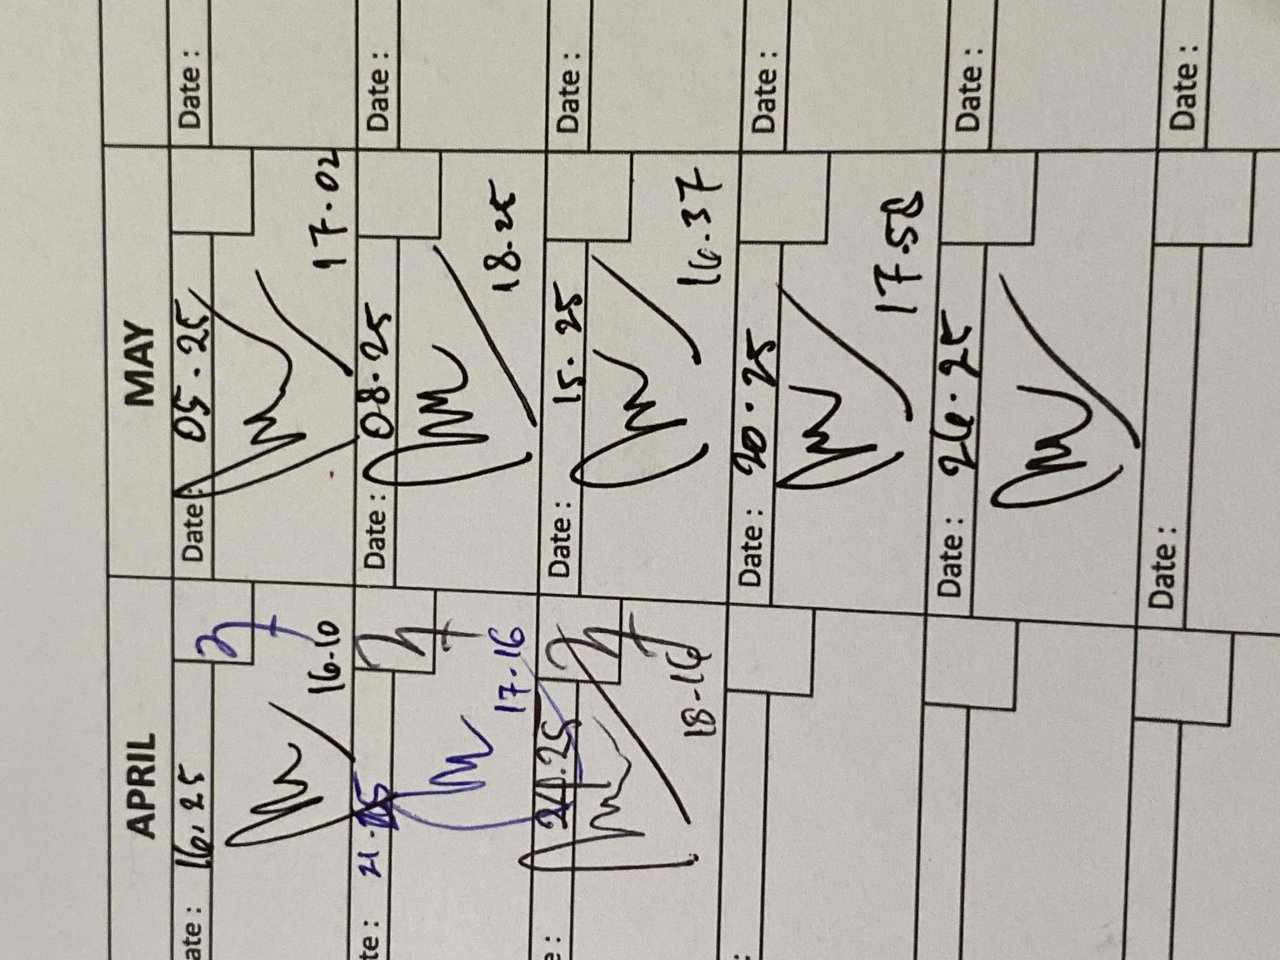 APRIL
MAY
ate : 16.25
16.10
Date : 05.25
17.02
Date :
te : 21.
17.16
Date : 08.25
18.25
Date :
e : 24.25
18-16
Date : 15.25
16.37
Date :
:
Date : 20.25
17.58
Date :
Date : 26.25
Date :
Date :
Date :